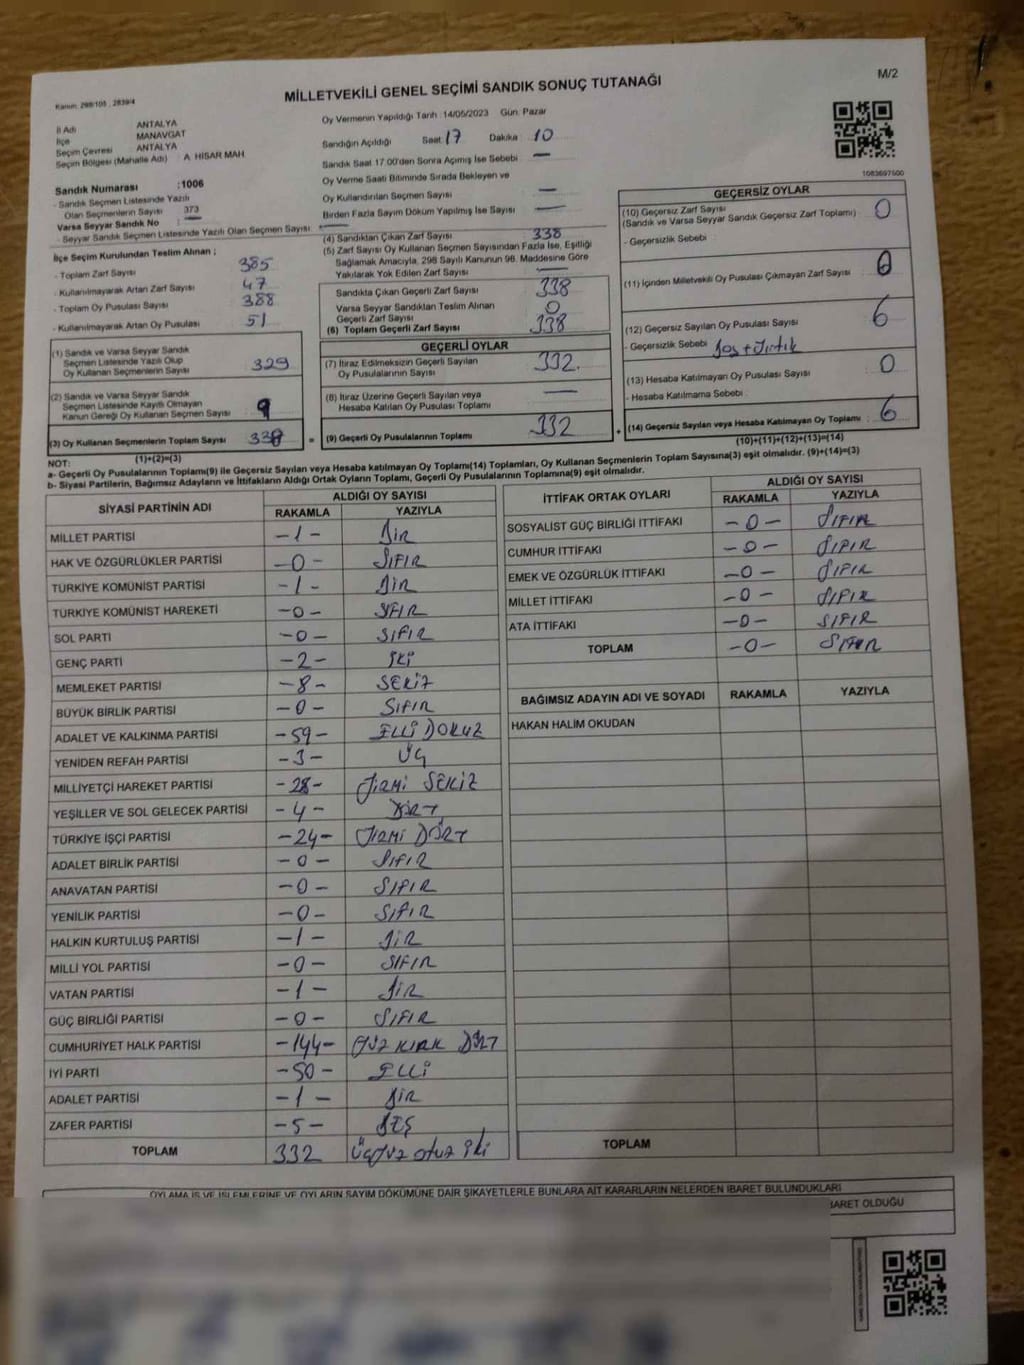 M/2
Kanun: 298/105 , 2839/4
MİLLETVEKİLİ GENEL SEÇİMİ SANDIK SONUÇ TUTANAĞI
İl Adı ANTALYA
İlçe MANAVGAT
Seçim Çevresi ANTALYA
Seçim Bölgesi (Mahalle Adı) : A. HİSAR MAH
Sandık Numarası :1006
- Sandık Seçmen Listesinde Yazılı
Olan Seçmenlerin Sayısı 373
Varsa Seyyar Sandık No : —
- Seyyar Sandık Seçmen Listesinde Yazılı Olan Seçmen Sayısı: —
İlçe Seçim Kurulundan Teslim Alınan ;
- Toplam Zarf Sayısı 385
- Kullanılmayarak Artan Zarf Sayısı 47
- Toplam Oy Pusulası Sayısı 388
- Kullanılmayarak Artan Oy Pusulası 51
(1) Sandık ve Varsa Seyyar Sandık
Seçmen Listesinde Yazılı Olup
Oy Kullanan Seçmenlerin Sayısı 329
(2) Sandık ve Varsa Seyyar Sandık
Seçmen Listesinde Kayıtlı Olmayan
Kanun Gereği Oy Kullanan Seçmen Sayısı 9
(3) Oy Kullanan Seçmenlerin Toplam Sayısı 338
(1)+(2)=(3)
Oy Vermenin Yapıldığı Tarih :14/05/2023 Gün: Pazar
Sandığın Açıldığı Saat 17 Dakika 10
Sandık Saat 17:00'den Sonra Açılmış İse Sebebi —
Oy Verme Saati Bitiminde Sırada Bekleyen ve
Oy Kullandırılan Seçmen Sayısı —
Birden Fazla Sayım Döküm Yapılmış İse Sayısı —
(4) Sandıktan Çıkan Zarf Sayısı 338
(5) Zarf Sayısı Oy Kullanan Seçmen Sayısından Fazla İse, Eşitliği
Sağlamak Amacıyla, 298 Sayılı Kanunun 98. Maddesine Göre
Yakılarak Yok Edilen Zarf Sayısı —
Sandıkta Çıkan Geçerli Zarf Sayısı 338
Varsa Seyyar Sandıktan Teslim Alınan
Geçerli Zarf Sayısı 0
(6) Toplam Geçerli Zarf Sayısı 338
GEÇERLİ OYLAR
(7) İtiraz Edilmeksizin Geçerli Sayılan
Oy Pusulalarının Sayısı 332.
(8) İtiraz Üzerine Geçerli Sayılan veya
Hesaba Katılan Oy Pusulası Toplamı —
= (9) Geçerli Oy Pusulalarının Toplamı 332
1083697600
GEÇERSİZ OYLAR
(10) Geçersiz Zarf Sayısı 0
(Sandık ve Varsa Seyyar Sandık Geçersiz Zarf Toplamı)
- Geçersizlik Sebebi
(11) İçinden Milletvekili Oy Pusulası Çıkmayan Zarf Sayısı 0
(12) Geçersiz Sayılan Oy Pusulası Sayısı 6
- Geçersizlik Sebebi
(13) Hesaba Katılmayan Oy Pusulası Sayısı 0
- Hesaba Katılmama Sebebi :
+ (14) Geçersiz Sayılan veya Hesaba Katılmayan Oy Toplamı : 6
(10)+(11)+(12)+(13)=(14)
NOT:
a- Geçerli Oy Pusulalarının Toplamı(9) ile Geçersiz Sayılan veya Hesaba katılmayan Oy Toplamı(14) Toplamları, Oy Kullanan Seçmenlerin Toplam Sayısına(3) eşit olmalıdır. (9)+(14)=(3)
b- Siyasi Partilerin, Bağımsız Adayların ve İttifakların Aldığı Ortak Oyların Toplamı, Geçerli Oy Pusulalarının Toplamına(9) eşit olmalıdır.
SİYASİ PARTİNİN ADI ALDIĞI OY SAYISI
RAKAMLA YAZIYLA
MİLLET PARTİSİ -1- BİR
HAK VE ÖZGÜRLÜKLER PARTİSİ -0- SIFIR
TÜRKİYE KOMÜNİST PARTİSİ -1- BİR
TÜRKİYE KOMÜNİST HAREKETİ -0- SIFIR
SOL PARTİ -0- SIFIR
GENÇ PARTİ -2- İKİ
MEMLEKET PARTİSİ -8- SEKİZ
BÜYÜK BİRLİK PARTİSİ -0- SIFIR
ADALET VE KALKINMA PARTİSİ -59- ELLİ DOKUZ
YENİDEN REFAH PARTİSİ -3- ÜÇ
MİLLİYETÇİ HAREKET PARTİSİ -28- YİRMİ SEKİZ
YEŞİLLER VE SOL GELECEK PARTİSİ -4- DÖRT
TÜRKİYE İŞÇİ PARTİSİ -24- YİRMİ DÖRT
ADALET BİRLİK PARTİSİ -0- SIFIR
ANAVATAN PARTİSİ -0- SIFIR
YENİLİK PARTİSİ -0- SIFIR
HALKIN KURTULUŞ PARTİSİ -1- BİR
MİLLİ YOL PARTİSİ -0- SIFIR
VATAN PARTİSİ -1- BİR
GÜÇ BİRLİĞİ PARTİSİ -0- SIFIR
CUMHURİYET HALK PARTİSİ -144- YÜZ KIRK DÖRT
İYİ PARTİ -50- ELLİ
ADALET PARTİSİ -1- BİR
ZAFER PARTİSİ -5- BEŞ
TOPLAM 332 Üçyüz otuz iki
İTTİFAK ORTAK OYLARI ALDIĞI OY SAYISI
RAKAMLA YAZIYLA
SOSYALİST GÜÇ BİRLİĞİ İTTİFAKI -0- SIFIR
CUMHUR İTTİFAKI -0- SIFIR
EMEK VE ÖZGÜRLÜK İTTİFAKI -0- SIFIR
MİLLET İTTİFAKI -0- SIFIR
ATA İTTİFAKI -0- SIFIR
TOPLAM -0- SIFIR
BAĞIMSIZ ADAYIN ADI VE SOYADI RAKAMLA YAZIYLA
HAKAN HALİM OKUDAN
TOPLAM
OYLAMA İŞ VE İŞLEMLERİNE VE OYLARIN SAYIM DÖKÜMÜNE DAİR ŞİKAYETLERLE BUNLARA AİT KARARLARIN NELERDEN İBARET BULUNDUKLARI
İBARET OLDUĞU